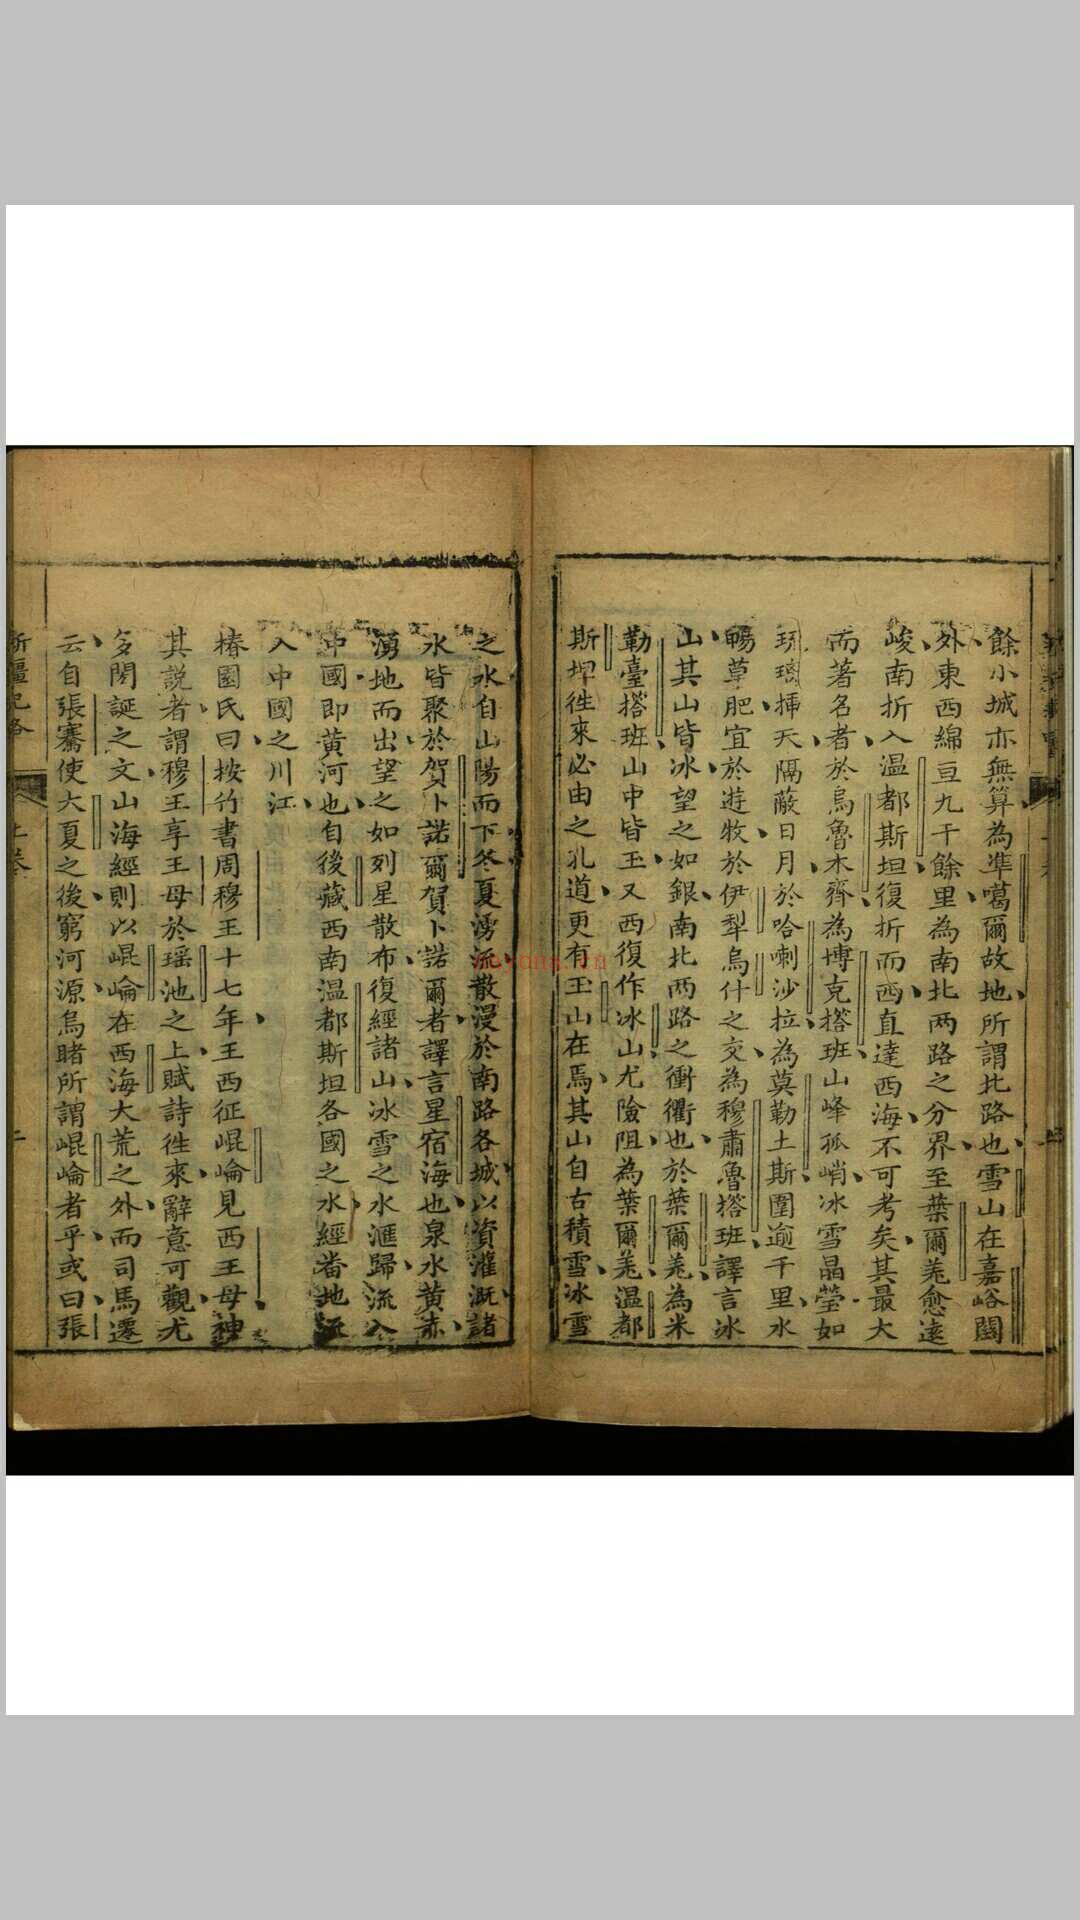 餘小城亦無算為準噶爾故地所謂北路也雪山在嘉峪關
外東西綿亘九千餘里為南北兩路之分界至葉爾羌愈遠
峻南折入温都斯坦復折而西直達西海不可考矣其最大
而著名者於烏魯木齊為博克搭班山峰孤峭冰雪晶瑩如
琉璃插天隔蔽日月於哈喇沙拉為莫勒土斯圍逾千里水
暢草肥宜於遊牧於伊犁烏什之交為穆肅魯搭班譯言冰
山其山皆冰望之如銀南北兩路之衝衢也於葉爾羌為米
勒臺搭班山中皆玉又西復作冰山尤險阻為葉爾羌温都
斯坦徃來必由之孔道更有玉山在焉其山自古積雪冰雪
之水自山陽而下冬夏湧流散漫於南路各城以資灌溉諸
水皆聚於賀卜諾爾賀卜諾爾者譯言星宿海也泉水黄赤
湧地而出望之如列星散布復經諸山冰雪之水滙歸流入
中國即黄河也自後藏西南温都斯坦各國之水經番地
入中國之川江
椿園氏曰按竹書周穆王十七年王西征崐崘見西王母神
其説者謂穆王享王母於瑶池之上賦詩徃來辭意可觀尤
多閎誕之文山海經則以崐崘在西海大荒之外而司馬遷
云自張騫使大夏之後窮河源烏睹所謂崐崘者乎或曰張
新疆紀畧 上卷